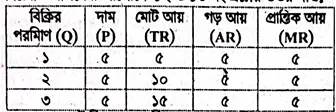 বিক্রির পরিমাণ (Q) দাম (P) মোট আয় (TR) গড় আয় (AR) প্রান্তিক আয় (MR)
১ ৫ ৫ ৫ ৫
২ ৫ ১০ ৫ ৫
৩ ৫ ১৫ ৫ ৫